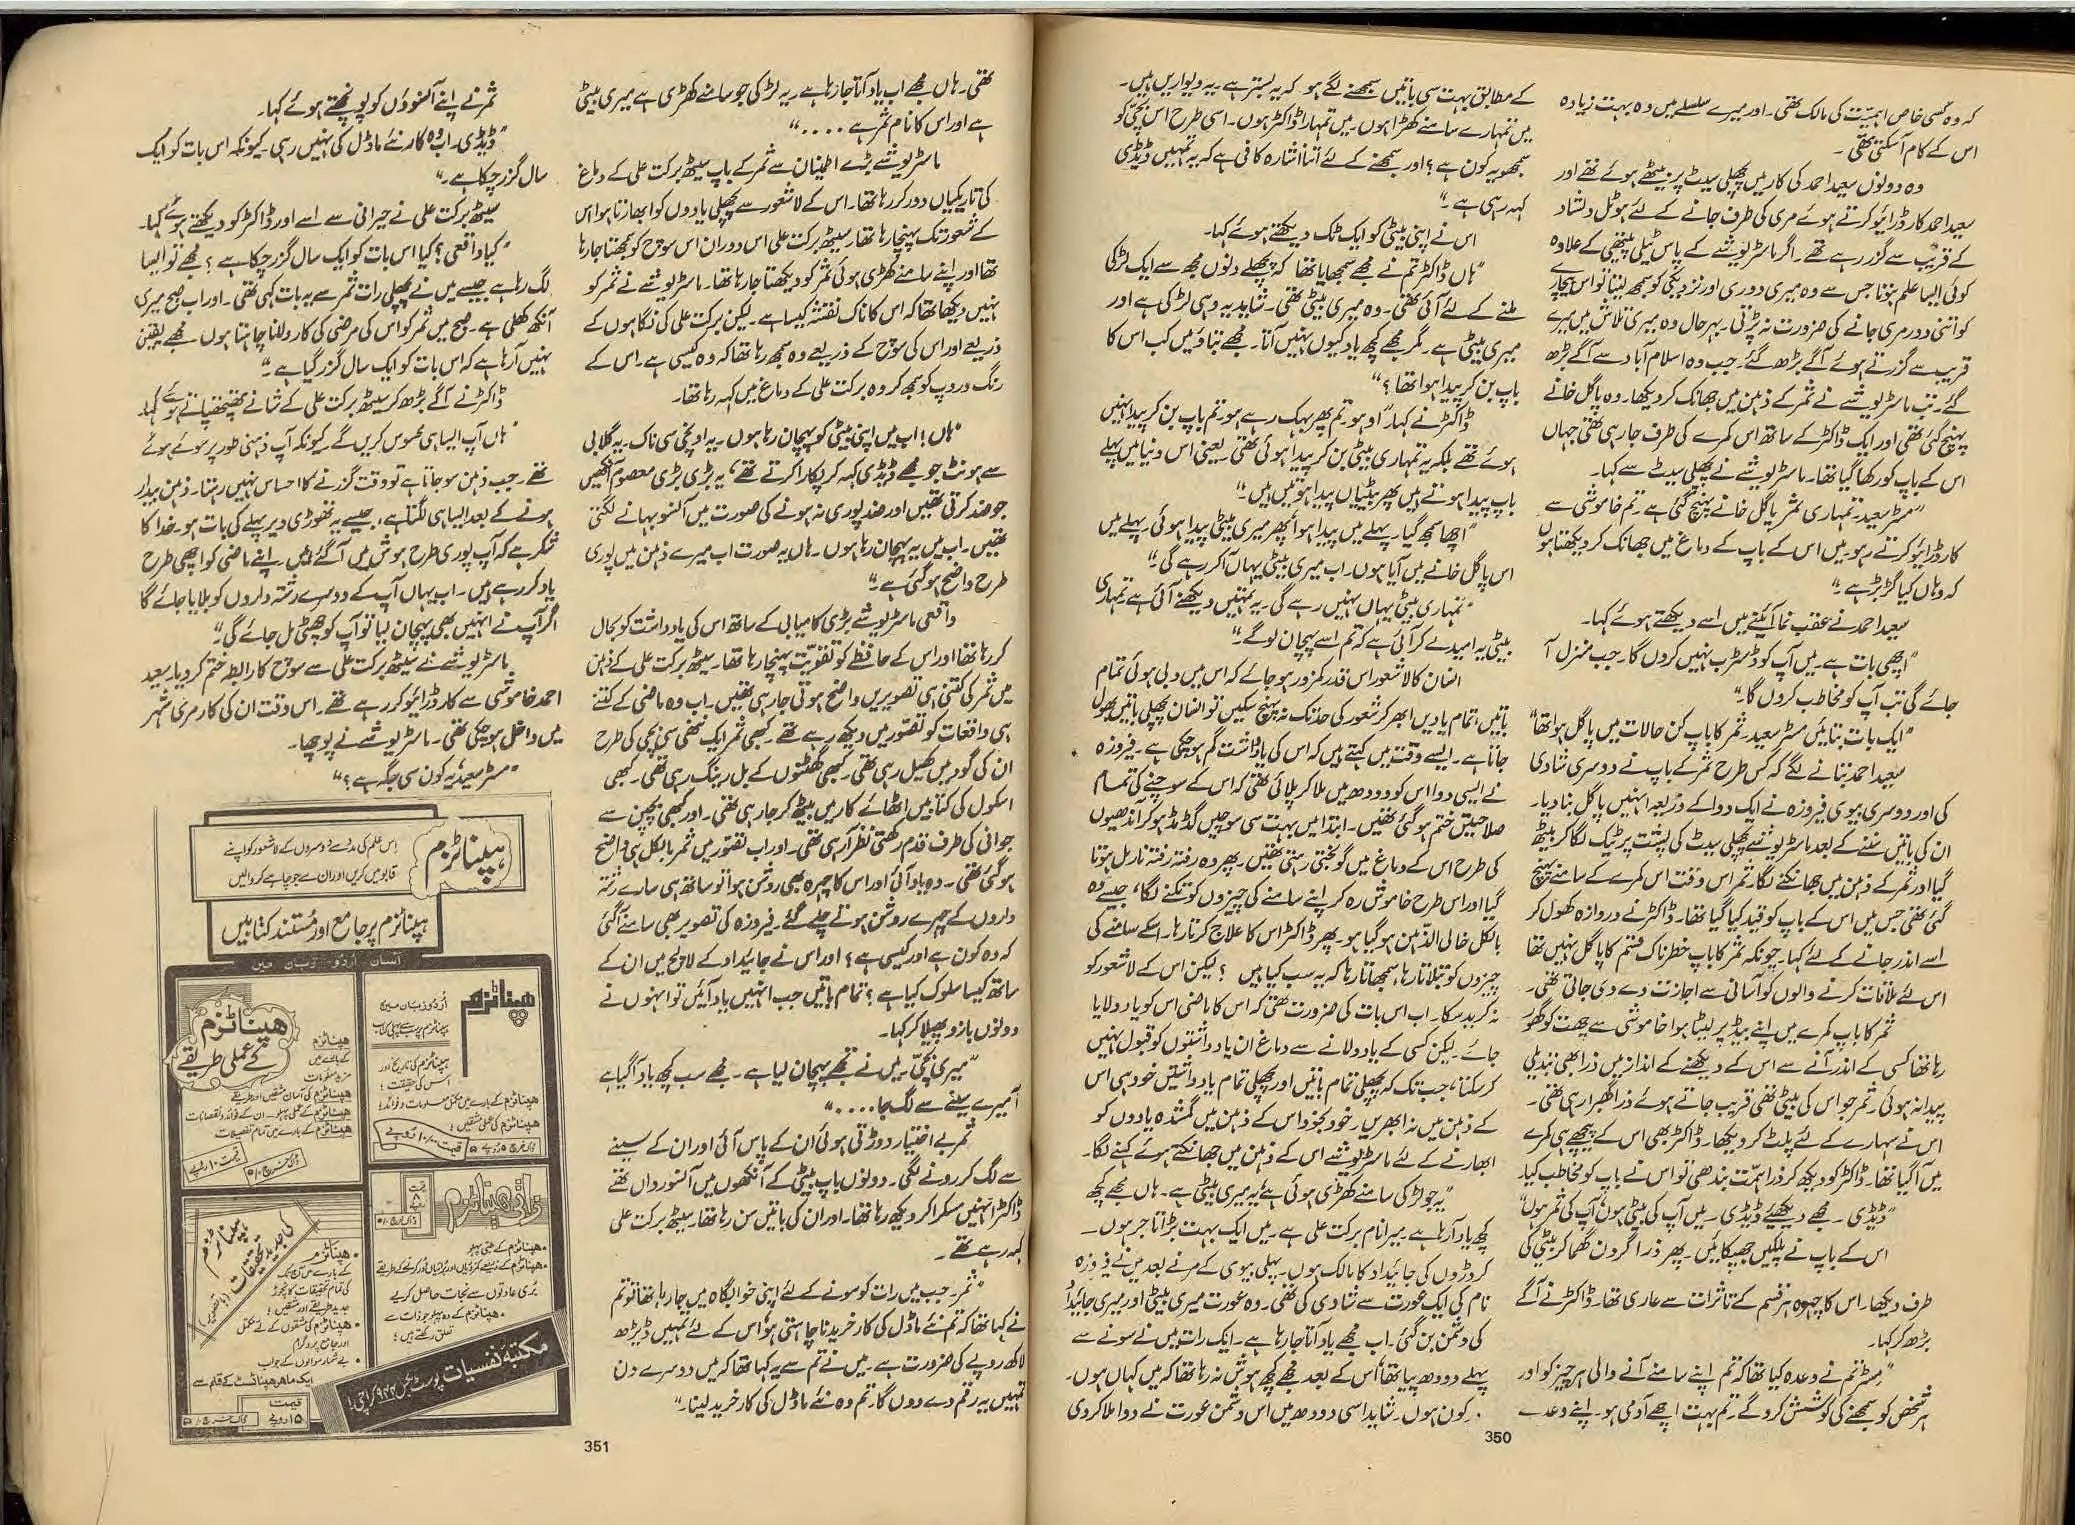 کہ وہ کسی خاص اہمیّت کی مالک تھی۔ اور میرے سلسلے میں وہ بہت زیادہ
اس کے کام آسکتی تھی۔
وہ دونوں سعید احمد کی کار میں پچھلی سیٹ پر بیٹھے ہوئے تھے اور
سعید احمد کار ڈرائیو کرتے ہوئے مری کی طرف جانے کے لئے ہوٹل دلشاد
کے قریب سے گزر رہے تھے۔ اگر ماسٹر یوشے کے پاس ٹیلی پیتھی کے علاوہ
کوئی ایسا علم ہوتا جس سے وہ میری دوری اور نزدیکی کو سمجھ لیتا تو اس بیچارے
کو اتنی دور مری جانے کی ضرورت نہ پڑتی۔ بہرحال وہ میری تلاش میں میرے
قریب سے گزرتے ہوئے آگے بڑھ گئے۔ جب وہ اسلام آباد سے آگے بڑھ
گئے۔ تب ماسٹر یوشے نے ثمر کے ذہن میں جھانک کر دیکھا۔ وہ پاگل خانے
پہنچ گئی تھی اور ایک ڈاکٹر کے ساتھ اس کمرے کی طرف جارہی تھی جہاں
اس کے باپ کو رکھا گیا تھا۔ ماسٹر یوشے نے پچھلی سیٹ سے کہا۔
”مسٹر سعید۔ تمہاری ثمر پاگل خانے پہنچ گئی ہے۔ تم خاموشی سے
کار ڈرائیو کرتے رہو۔ میں اس کے باپ کے دماغ میں جھانک کر دیکھتا ہوں
کہ وہاں کیا گڑبڑ ہے۔“
سعید احمد نے عقب نما آئینے میں اسے دیکھتے ہوئے کہا۔
”اچھی بات ہے۔ میں آپ کو ڈسٹرب نہیں کروں گا۔ جب منزل آ
جائے گی تب آپ کو مخاطب کروں گا۔“
”ایک بات بتائیں مسٹر سعید۔ ثمر کا باپ کن حالات میں پاگل ہوا تھا“
سعید احمد بتانے لگے کہ کس طرح ثمر کے باپ نے دوسری شادی
کی اور دوسری بیوی فیروزہ نے ایک دوا کے ذریعہ انہیں پاگل بنا دیا۔
ان کی باتیں سننے کے بعد ماسٹر یوشے پچھلی سیٹ کی پشت پر ٹیک لگا کر بیٹھ
گیا اور ثمر کے ذہن میں جھانکنے لگا۔ ثمر اس وقت اس کمرے کے سامنے پہنچ
گئی تھی جس میں اس کے باپ کو قید کیا گیا تھا۔ ڈاکٹر نے دروازہ کھول کر
اسے اندر جانے کے لئے کہا۔ چونکہ ثمر کا باپ خطرناک قسم کا پاگل نہیں تھا
اس لئے ملاقات کرنے والوں کو آسانی سے اجازت دے دی جاتی تھی۔
ثمر کا باپ کمرے میں اپنے بیڈ پر لیٹا ہوا خاموشی سے چھت کو گھور
رہا تھا کسی کے اندر آنے سے اس کے دیکھنے کے انداز میں ذرا بھی تبدیلی
پیدا نہ ہوئی۔ ثمر جو اس کی بیٹی تھی قریب جاتے ہوئے ذرا گھبرا رہی تھی۔
اس نے سہارے کے لئے پلٹ کر دیکھا۔ ڈاکٹر بھی اس کے پیچھے ہی کمرے
میں آگیا تھا۔ ڈاکٹر کو دیکھ کر ذرا ہمّت بندھی تو اس نے باپ کو مخاطب کیا۔
”ڈیڈی۔ مجھے دیکھئے ڈیڈی۔ میں آپ کی بیٹی ہوں آپ کی ثمر ہوں“
اس کے باپ نے پلکیں جھپکائیں۔ پھر ذرا گردن گھما کر بیٹی کی
طرف دیکھا۔ اس کا چہرہ ہر قسم کے تاثرات سے عاری تھا۔ ڈاکٹر نے آگے
بڑھ کر کہا۔
”مسٹر تم نے وعدہ کیا تھا کہ تم اپنے سامنے آنے والی ہر چیز کو اور
ہر شخص کو سمجھنے کی کوشش کرو گے۔ تم بہت اچھے آدمی ہو۔ اپنے وعدے
کے مطابق بہت سی باتیں سمجھنے لگے ہو۔ کہ یہ بستر ہے۔ یہ دیواریں ہیں۔
میں تمہارے سامنے کھڑا ہوں۔ میں تمہارا ڈاکٹر ہوں۔ اسی طرح اس بچّی کو
سمجھو یہ کون ہے؟ اور سمجھنے کے لئے اتنا اشارہ کافی ہے کہ یہ تمہیں ڈیڈی
کہہ رہی ہے۔“
اس نے اپنی بیٹی کو ایک ٹک دیکھتے ہوئے کہا۔
”ہاں ڈاکٹر تم نے مجھے سمجھایا تھا کہ پچھلے دنوں مجھ سے ایک لڑکی
ملنے کے لئے آئی تھی۔ وہ میری بیٹی تھی۔ شاید یہ وہی لڑکی ہے اور
میری بیٹی ہے۔ مگر مجھے کچھ یاد کیوں نہیں آتا۔ مجھے بتاؤ میں کب اس کا
باپ بن کر پیدا ہوا تھا؟“
ڈاکٹر نے کہا۔ ”اوہو تم پھر بہک رہے ہو۔ تم باپ بن کر پیدا نہیں
ہوئے تھے بلکہ یہ تمہاری بیٹی بن کر پیدا ہوئی تھی۔ یعنی اس دنیا میں پہلے
باپ پیدا ہوتے ہیں پھر بیٹیاں پیدا ہوتی ہیں“
”اچھا سمجھ گیا۔ پہلے میں پیدا ہوا پھر میری بیٹی پیدا ہوئی پہلے میں
اس پاگل خانے میں آیا ہوں۔ اب میری بیٹی یہاں آکر رہے گی۔“
”تمہاری بیٹی یہاں نہیں رہے گی۔ یہ تمہیں دیکھنے آئی ہے تمہاری
بیٹی یہ امید لے کر آئی ہے کہ تم اسے پہچان لو گے۔“
انسان کا لاشعور اس قدر کمزور ہو جائے کہ اس میں دبی ہوئی تمام
باتیں، تمام یادیں ابھر کر شعور کی حد تک نہ پہنچ سکیں تو انسان پچھلی باتیں بھول
جاتا ہے۔ ایسے وقت میں کہتے ہیں کہ اس کی یادداشت گم ہو چکی ہے۔ فیروزہ
نے ایسی دوا اس کو دودھ میں ملا کر پلائی تھی کہ اس کے سوچنے کی تمام
صلاحیتیں ختم ہو گئی تھیں۔ ابتدا میں بہت سی سوچیں گڈمڈ ہو کر آندھیوں
کی طرح اس کے دماغ میں گونجتی رہتی تھیں۔ پھر وہ رفتہ رفتہ نارمل ہوتا
گیا اور اس طرح خاموش رہ کر اپنے سامنے کی چیزوں کو تکنے لگا، جیسے وہ
بالکل خالی الذّہن ہو گیا ہو۔ پھر ڈاکٹر اس کا علاج کرتا رہا۔ اسکے سامنے کی
چیزوں کو بتلاتا رہا، سمجھاتا رہا کہ یہ سب کیا ہیں؟ لیکن اس کے لاشعور کو
نہ کرید سکا۔ اب اس بات کی ضرورت تھی کہ اس کا ماضی اس کو یاد دلایا
جائے۔ لیکن کسی کے یاد دلانے سے دماغ ان یادداشتوں کو قبول نہیں
کر سکتا، جب تک کہ پچھلی تمام باتیں اور پچھلی تمام یادداشتیں خود ہی اس
کے ذہن میں نہ ابھریں۔ خود بخود اس کے ذہن میں گمشدہ یادوں کو
ابھارنے کے لئے ماسٹر یوشے اس کے ذہن میں جھانکتے ہوئے کہنے لگا۔
”یہ جو لڑکی سامنے کھڑی ہوئی ہے، یہ میری بیٹی ہے۔ ہاں مجھے کچھ
کچھ یاد آرہا ہے۔ میرا نام برکت علی ہے۔ میں ایک بہت بڑا تاجر ہوں۔
کروڑوں کی جائیداد کا مالک ہوں۔ پہلی بیوی کے مرنے بعد میں نے فیروزہ
نام کی ایک عورت سے شادی کی تھی۔ وہ عورت میری بیٹی اور میری جائیداد
کی دشمن بن گئی۔ اب مجھے یاد آتا جارہا ہے۔ ایک رات میں نے سونے سے
پہلے دودھ پیا تھا، اُس کے بعد مجھے کچھ ہوش نہ رہا تھا کہ میں کہاں ہوں۔
کون ہوں۔ شاید اسی دودھ میں اس دشمن عورت نے دوا ملا کر دی
350
تھی۔ ہاں مجھے اب یاد آتا جارہا ہے۔ یہ لڑکی جو سامنے کھڑی ہے میری بیٹی
ہے اور اس کا نام ثمر ہے ....“
ماسٹر یوشے بڑے اطمینان سے ثمر کے باپ سیٹھ برکت علی کے دماغ
کی تاریکیاں دور کر رہا تھا۔ اس کے لاشعور سے پچھلی یادوں کو ابھارتا ہوا اس
کے شعور تک پہنچا رہا تھا۔ سیٹھ برکت علی اس دوران اس سوچ کو سمجھتا جارہا
تھا اور اپنے سامنے کھڑی ہوئی ثمر کو دیکھتا جارہا تھا۔ ماسٹر یوشے نے ثمر کو
نہیں دیکھا تھا کہ اس کا ناک نقشہ کیسا ہے۔ لیکن برکت علی کی نگاہوں کے
ذریعے اور اس کی سوچ کے ذریعے وہ سمجھ رہا تھا کہ وہ کیسی ہے۔ اس کے
رنگ و روپ کو سمجھ کر وہ برکت علی کے دماغ میں کہہ رہا تھا۔
”ہاں! اب میں اپنی بیٹی کو پہچان رہا ہوں۔ یہ اونچی سی ناک۔ یہ گلابی
سے ہونٹ جو مجھے ڈیڈی کہہ کر پکارا کرتے تھے، یہ بڑی بڑی معصوم آنکھیں
جو ضد کرتی تھیں اور ضد پوری نہ ہونے کی صورت میں آنسو بہانے لگتی
تھیں۔ اب میں یہ پہچان رہا ہوں۔ ہاں یہ صورت اب میرے ذہن میں پوری
طرح واضح ہو گئی ہے۔“
واقعی ماسٹر یوشے بڑی کامیابی کے ساتھ اس کی یادداشت کو بحال
کر رہا تھا اور اس کے حافظے کو تقویّت پہنچا رہا تھا۔ سیٹھ برکت علی کے ذہن
میں ثمر کی کتنی ہی تصویریں واضح ہوتی جارہی تھیں۔ اب وہ ماضی کے کتنے
ہی واقعات کو تصوّر میں دیکھ رہے تھے۔ کبھی ثمر ایک ننھی سی بچی کی طرح
ان کی گود میں کھیل رہی تھی۔ کبھی گھٹنوں کے بل رینگ رہی تھی۔ کبھی
اسکول کی کتابیں اٹھائے کار میں بیٹھ کر جارہی تھی۔ اور کبھی بچپن سے
جوانی کی طرف قدم رکھتی نظر آرہی تھی۔ اور اب تصّور میں ثمر بالکل ہی واضح
ہو گئی تھی۔ وہ یاد آئی اور اس کا چہرہ بھی روشن ہوا تو ساتھ ہی سارے رشتہ
داروں کے چہرے روشن ہوتے چلے گئے۔ فیروزہ کی تصویر بھی سامنے آگئی
کہ وہ کون ہے اور کیسی ہے؟ اور اس نے جائیداد کے لالچ میں ان کے
ساتھ کیسا سلوک کیا ہے؟ تمام باتیں جب انہیں یاد آئیں تو انہوں نے
دونوں بازو پھیلا کر کہا۔
”میری بچّی۔ میں نے تجھے پہچان لیا ہے۔ مجھے سب کچھ یاد آگیا ہے
آ میرے سینے سے لگ جا....“
ثمر بے اختیار دوڑتی ہوئی ان کے پاس آئی اور ان کے سینے
سے لگ کر رونے لگی۔ دونوں باپ بیٹی کے آنکھوں میں آنسو رواں تھے
ڈاکٹر انہیں مسکرا کر دیکھ رہا تھا۔ اور ان کی باتیں سن رہا تھا۔ سیٹھ برکت علی
کہہ رہے تھے۔
”ثمر۔ جب میں رات کو سونے کے لئے اپنی خوابگاہ میں جارہا تھا تو تم
نے کہا تھا کہ تم نئے ماڈل کی کار خریدنا چاہتی ہو، اس کے لئے تمہیں ڈیڑھ
لاکھ روپے کی ضرورت ہے۔ میں نے تم سے یہ کہا تھا کہ میں دوسرے دن
تمہیں یہ رقم دے دوں گا۔ تم وہ نئے ماڈل کی کار خرید لینا۔“
ثمر نے اپنے آنسوؤں کو پونچھتے ہوئے کہا۔
”ڈیڈی۔ اب وہ کار نئے ماڈل کی نہیں رہی۔ کیونکہ اس بات کو ایک
سال گزر چکا ہے۔“
سیٹھ برکت علی نے حیرانی سے اسے اور ڈاکٹر کو دیکھتے ہوئے کہا۔
”کیا واقعی؟ کیا اس بات کو ایک سال گزر چکا ہے؟ مجھے تو ایسا
لگ رہا ہے جیسے میں نے پچھلی رات ثمر سے یہ بات کہی تھی۔ اور اب صبح میری
آنکھ کھلی ہے۔ صبح میں ثمر کو اس کی مرضی کی کار دلانا چاہتا ہوں مجھے یقین
نہیں آرہا ہے کہ اس بات کو ایک سال گزر گیا ہے۔“
ڈاکٹر نے آگے بڑھ کر سیٹھ برکت علی کے شانے تھپتھپاتے ہوئے کہا۔
”ہاں آپ ایسا ہی محسوس کریں گے۔ کیونکہ آپ ذہنی طور پر سوئے ہوئے
تھے۔ جب ذہن سو جاتا ہے تو وقت گزرنے کا احساس نہیں رہتا۔ ذہن بیدار
ہونے کے بعد ایسا ہی لگتا ہے، جیسے یہ تھوڑی دیر پہلے کی بات ہو۔ خدا کا
شکر ہے کہ آپ پوری طرح ہوش میں آگئے ہیں۔ اپنے ماضی کو اچھی طرح
یاد کر رہے ہیں۔ اب یہاں آپ کے دوسرے رشتہ داروں کو بلایا جائے گا
اگر آپ نے انہیں بھی پہچان لیا تو آپ کو چھٹی مل جائے گی۔“
ماسٹر یوشے نے سیٹھ برکت علی سے سوچ کا رابطہ ختم کر دیا۔ سعید
احمد خاموشی سے کار ڈرائیو کر رہے تھے۔ اس وقت ان کی کار مری شہر
میں داخل ہو چکی تھی۔ ماسٹر یوشے نے پوچھا۔
”مسٹر سعید، یہ کون سی جگہ ہے؟“
ہپناٹزم
اِس علم کی مدد سے دوسروں کے لاشعور کو اپنے
قابو میں کریں اور ان سے جو چاہے کروالیں
ہپناٹزم پر جامع اور مُستند کتابیں
آسان اردو زبان میں
ہپناٹزم
اُردو زبان میں
ہپناٹزم پر سب سے پہلی کتاب
ہپناٹزم کی تاریخ اور
اس کی حقیقت؛
ہپناٹزم کے بارے میں مکمل معلومات و فوائد؛
ہپناٹزم کی عملی مشقیں؛
قیمت ۱۰ روپے
ہپناٹزم
کے عملی طریقے
ہپناٹزم
کے بارے میں
مزید معلومات
ہپناٹزم کی آسان مشقیں اور طریقے
ہپناٹزم کے عملی پہلو۔ ان کے فوائد و نقصانات
ہپناٹزم کے بارے میں تمام تفصیلات
قیمت ۱۰ روپے
ذاتی ہپناٹزم
قیمت
۵
روپے
• ہپناٹزم کے طبی پہلو
• ہپناٹزم کے ذریعے کمزوریاں اور برائیاں دُور کرنے کے طریقے
بُری عادتوں سے نجات حاصل کریے
• ہپناٹزم کے وہ پہلو جو ذات سے
تعلق رکھتے ہیں؛
ہپناٹزم
کی جدید تحقیقات
• ہپناٹزم
کے بارے میں آج تک
کی تمام تحقیقات کا نچوڑ
جدید طریقے اور مشقیں؛
• ہپناٹزم کی مشقوں کے لئے مکمل
اور جامع پروگرام
• بے شمار سوالوں کے جواب
ایک ماہر ہپناٹسٹ کے قلم سے
قیمت
۱۵ روپے
مکتبۂ نفسیات پوسٹ بکس ۹۴۴ کراچی ۱
351